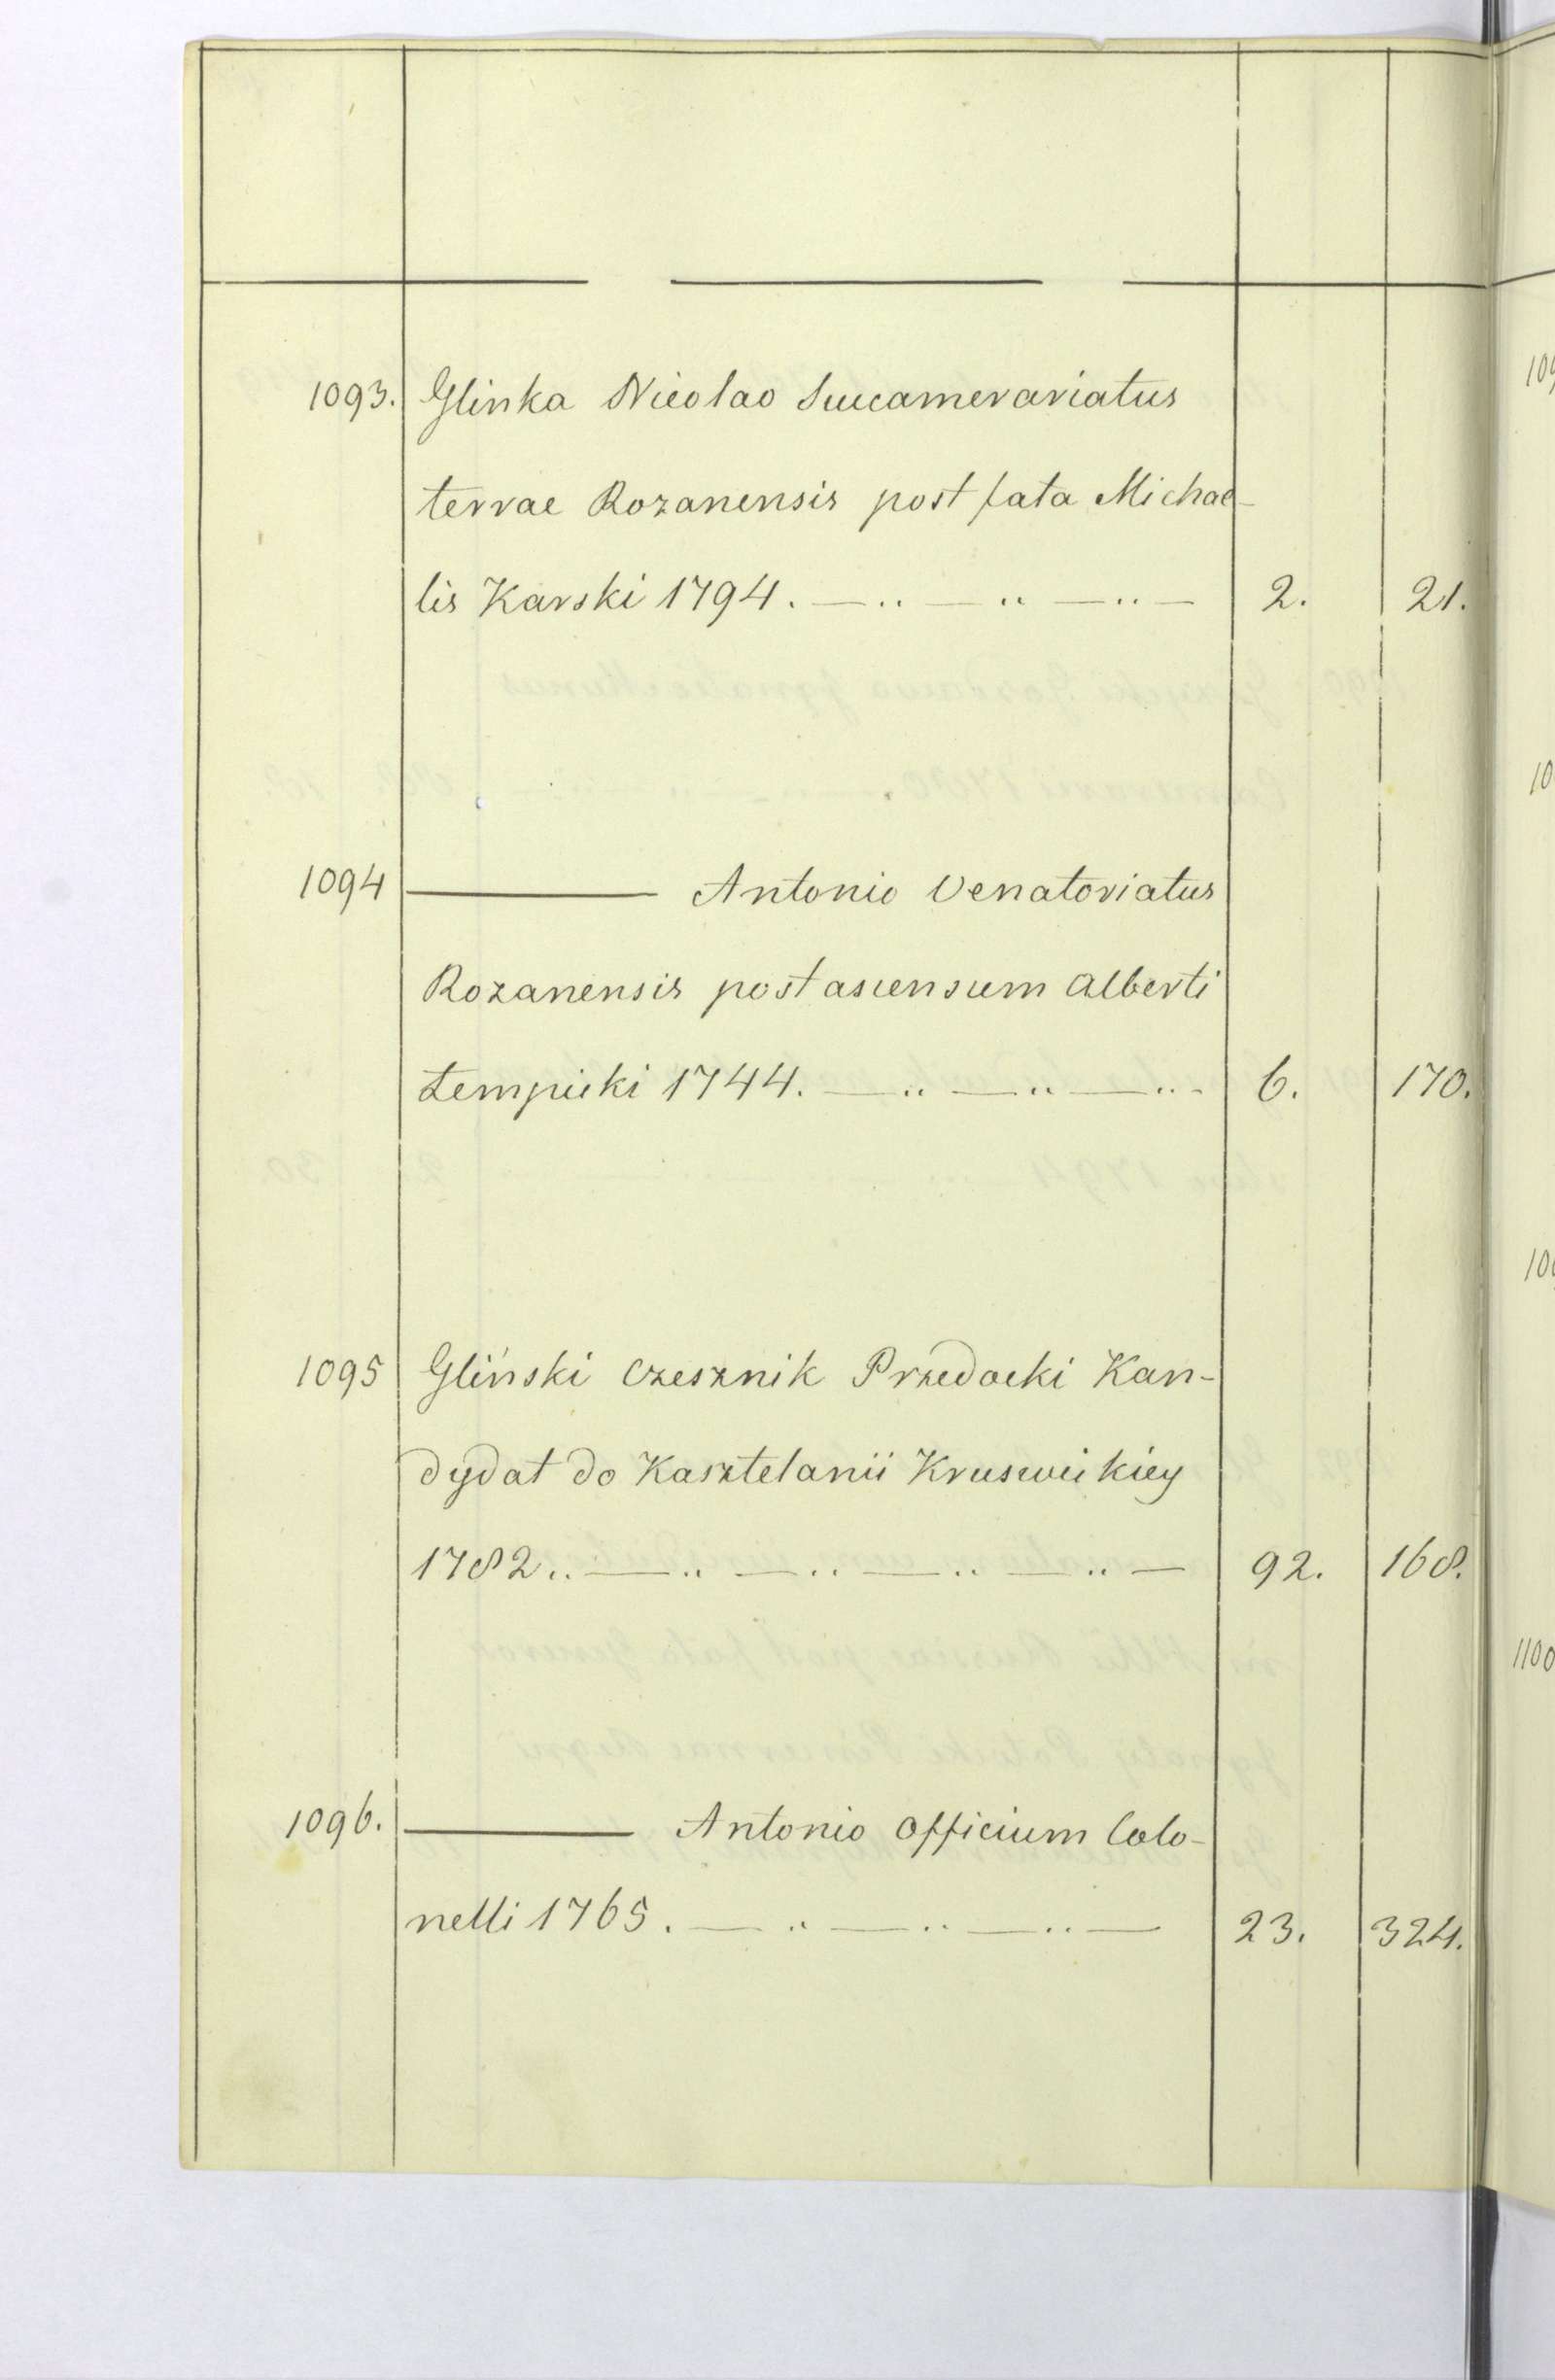 1093. Glinka Nicolao Succamerariatus
terrae Rozanensis post fata Michae-
lis Karski 1794. — .. — .. — .. — 2. 21.
1094 ——— Antonio Venatoriatus
Rozanensis post ascensum Alberti
Łempicki 1744. — .. — .. — .. - 6. 170.
1095 Gliński Czesznik Przedecki Kan-
dydat do Kasztelanii Kruswickiey
1782 .. — .. — .. — .. — .. — 92. 168.
1096. ——— Antonio Officium Colo-
nelli 1765. — .. — .. — .. — 23. 324.
1100